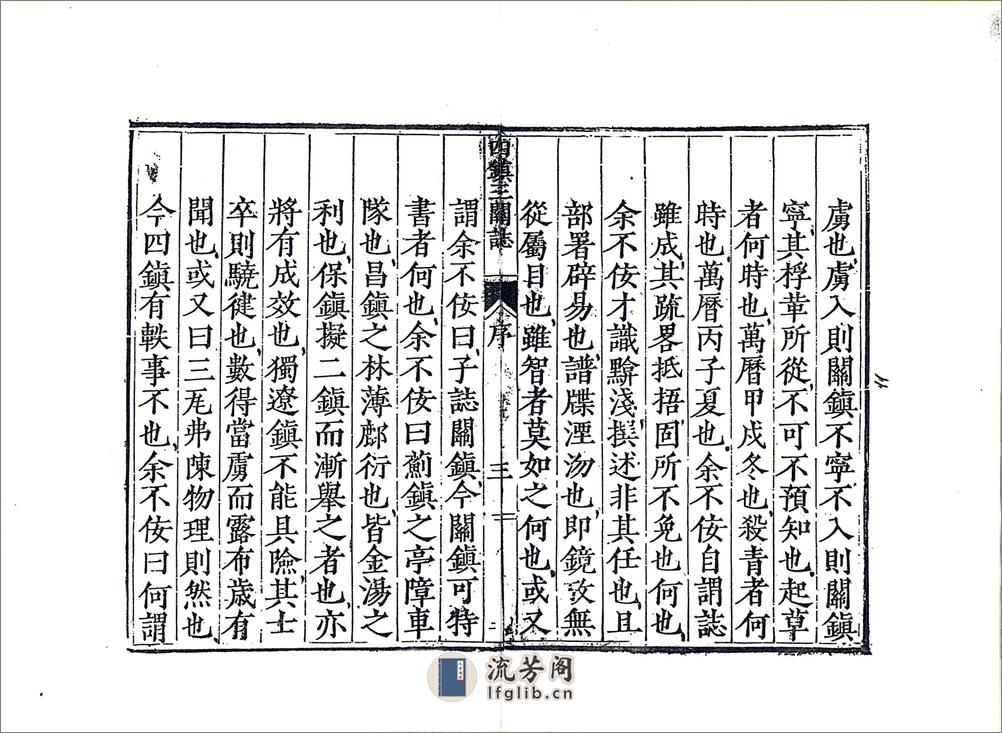 虜也虜入則關鎮不寧不入則關鎮
寧其桴革所從不可不預知也起草
者何時也萬曆甲戌冬也殺青者何
時也萬曆丙子夏也余不佞自謂誌
雖成其疏畧抵捂固所不免也何也
余不佞才識黭淺撰述非其任也且
部署辟易也譜牒湮沕也即鏡攷無
從屬目也雖智者莫如之何也或又
四鎮三關誌 序 三
謂余不佞曰子誌關鎮今關鎮可特
書者何也余不佞曰薊鎮之亭障車
隊也昌鎮之林薄鄜衍也皆金湯之
利也保鎮擬二鎮而漸舉之者也亦
將有成效也獨遼鎮不能具險其士
卒則驍徤也數得當虜而露布歲有
聞也或又曰三厖弗陳物理則然也
今四鎮有軼事不也余不佞曰何謂
流芳阁
lfglib.cn